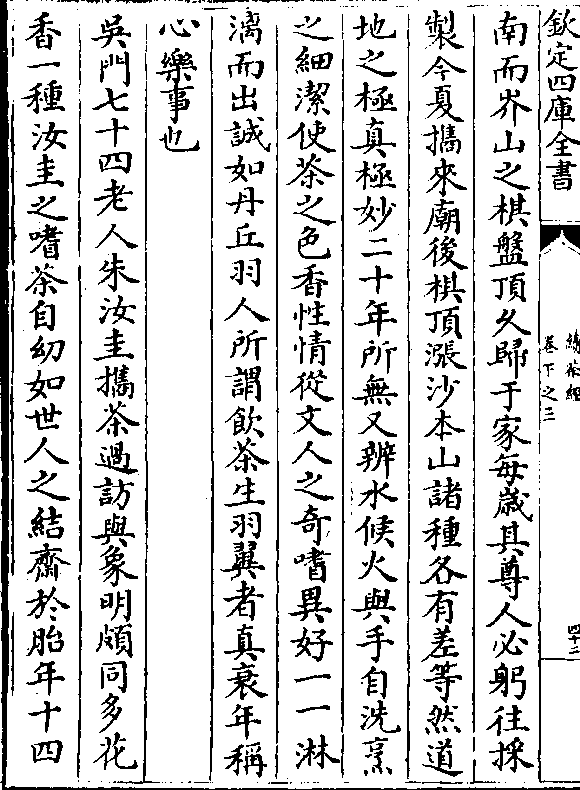 欽定四庫全書
續茶經
卷下之三
四十二
南而岕山之棋盤頂久歸于家每歲其尊人必躬往採
製今夏攜來廟後棋頂漲沙本山諸種各有差等然道
地之極真極妙二十年所無又辨水候火與手自洗烹
之細潔使茶之色香性情從文人之奇嗜異好一一淋
漓而出誠如丹丘羽人所謂飲茶生羽翼者真衰年稱
心樂事也
吳門七十四老人朱汝圭攜茶過訪與象明頗同多花
香一種汝圭之嗜茶自幼如世人之結齋於胎年十四